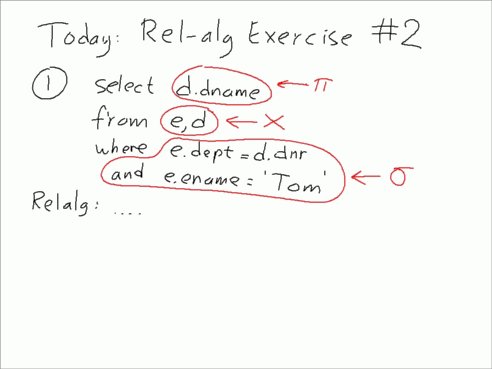 Today: Rel-alg Exercise #2
① select d.dname ← π
from e,d ← ×
where e.dept = d.dnr
and e.ename = 'Tom' ← σ
Relalg: ....